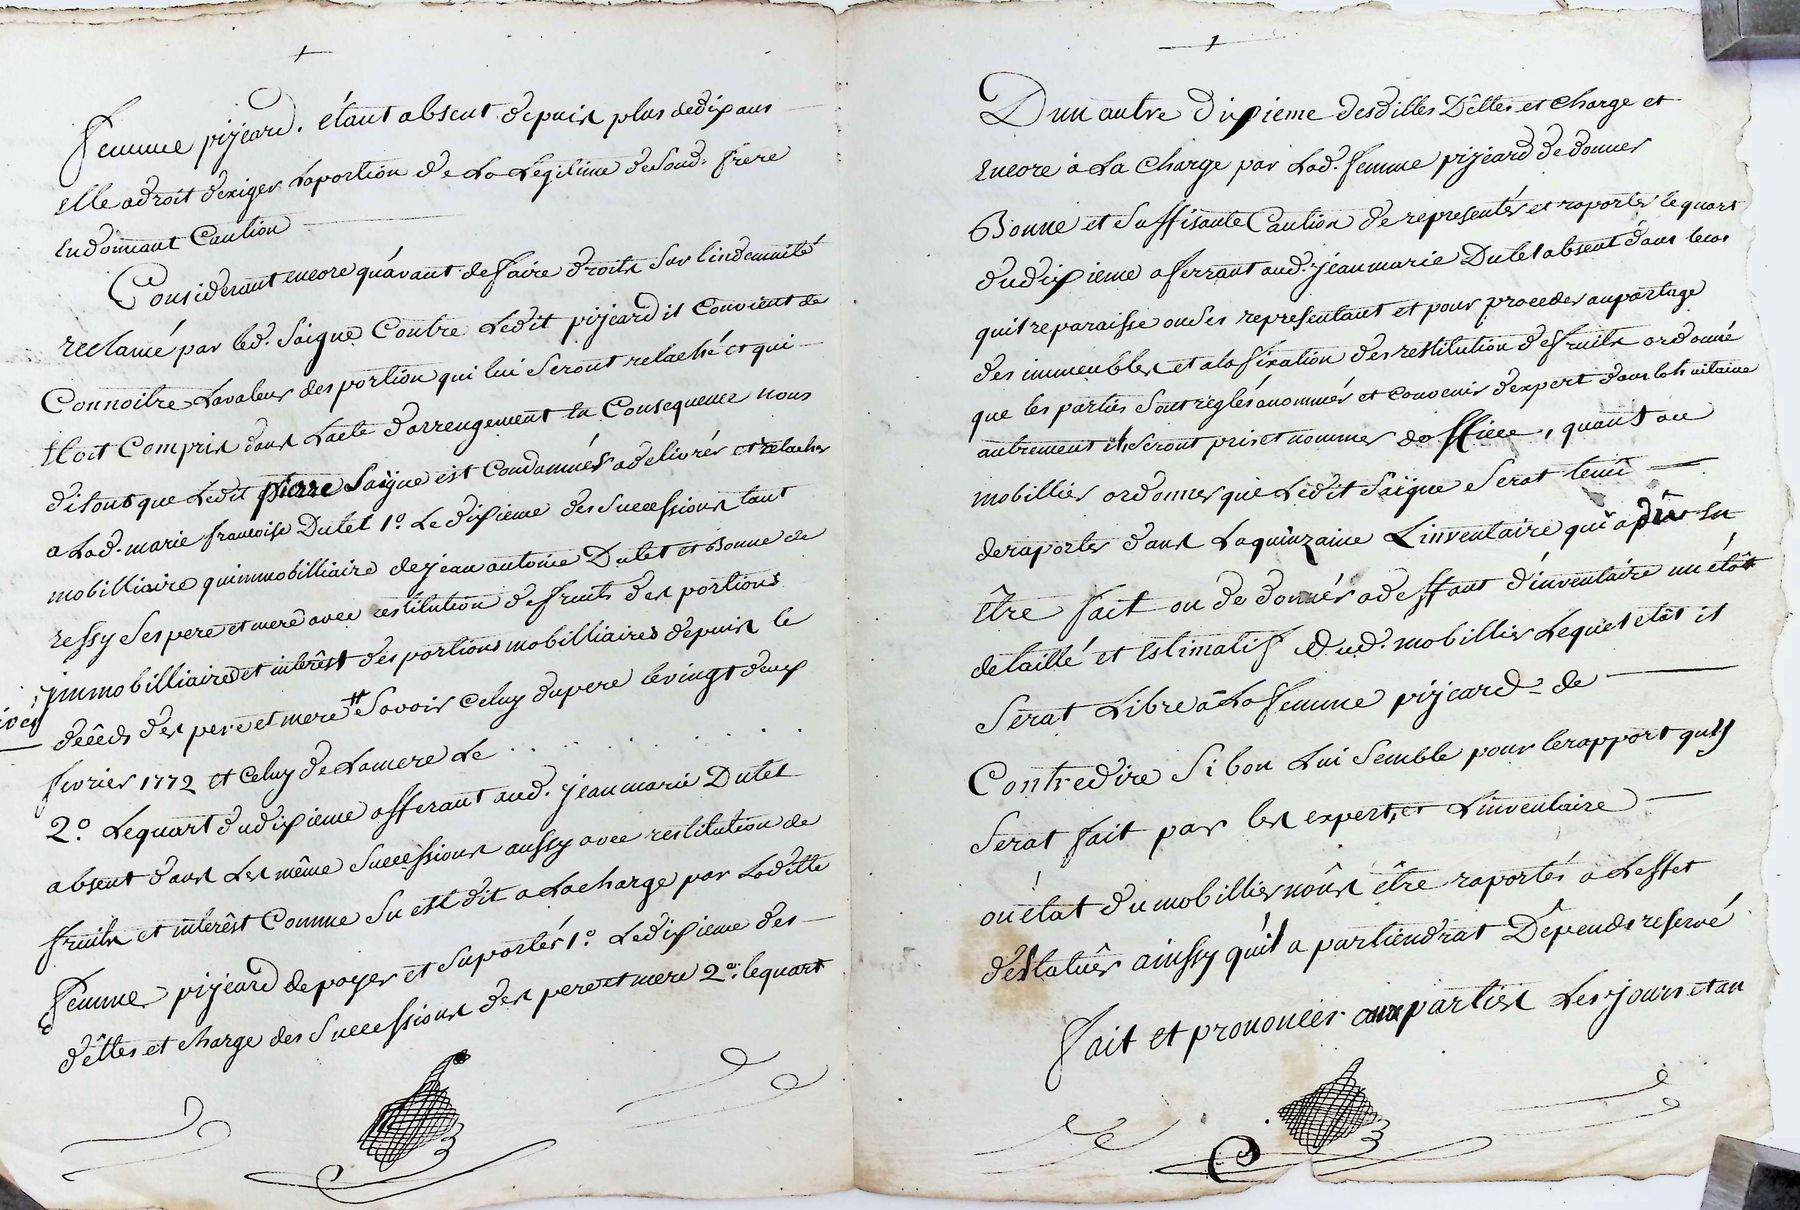 femme pijeard. étant absent depuis plus de dix ans
elle a droit d'exiger la portion de la Legitime de Sond. frere
en donnant Caution
Considerant encore qu'avant de faire droits Sur l'indemnité
reclamé par led. Saigne Contre Ledit pijeard il Convient de
Connoitre La valeur des portion qui lui Seront relaché et qui
Etoit Compris dans L'acte d'arrengement En Consequence nous
disons que Ledit pierre Saigne est Condamnés a delivrés et relacher
a Lad. marie françoise Dutel 1º. Le dixieme des Successions tant
mobilliaire qu'immobilliaire de jean antoine Dutet et Bonne de
ressy Ses pere et mere avec restitution de fruits des portions
immobilliaires et interêst des portions mobilliaires depuis le
décés des pere et mere # Savoir Celuy du pere le vingt deux
fevrier 1772 et Celuy de La mere Le . . . . . . .
2.º Le quart du dixieme afferant aud. jean marie Dutet
absent dans Les même Successions aussy avec restitution de
fruits et interêst Comme Su est dit a La charge par Laditte
femme pijeard de payer et Suportés 1º. Le dixieme des
dêttes et charge des Successions des pere et mere 2º. le quart
D'un autre dixieme desdittes Dêttes et Charge et
Encore à La Charge par Lad. femme pijeard de donner
Bonne et Suffisante Caution de representés et raporter le quart
du dixieme aferrant aud. jean marie Dutet absent dans le cas
qu'il reparaisse ou Ses representant et pour proceder au partage
des immeubles et a la fixation des restitution de fruits ordonné
que les parties Sont reglés a nommés et convenir d'expert dans la huitaine
autrement ils Seront pris et nommer d'office, quant au
mobillier ordonner que Ledit Saigne Serat tenû
de raporter dans La quinzaine L'inventaire qui a dû en
être fait ou de donnés a deffaut d'inventaire un étât
detaillé et Estimatif dud. mobillier Lequel etât il
Serat Libre a La femme pijeard de
Contredire Si bon Lui Semble pour le rapport qu'y
Serat fait par les expert, et L'inventaire
ou êtat du mobillier nous être raportés a L'effet
d'estatuer ainssy qu'il a partiendrat Dêpends reservé
fait et prononcés aux parties Les jours et an